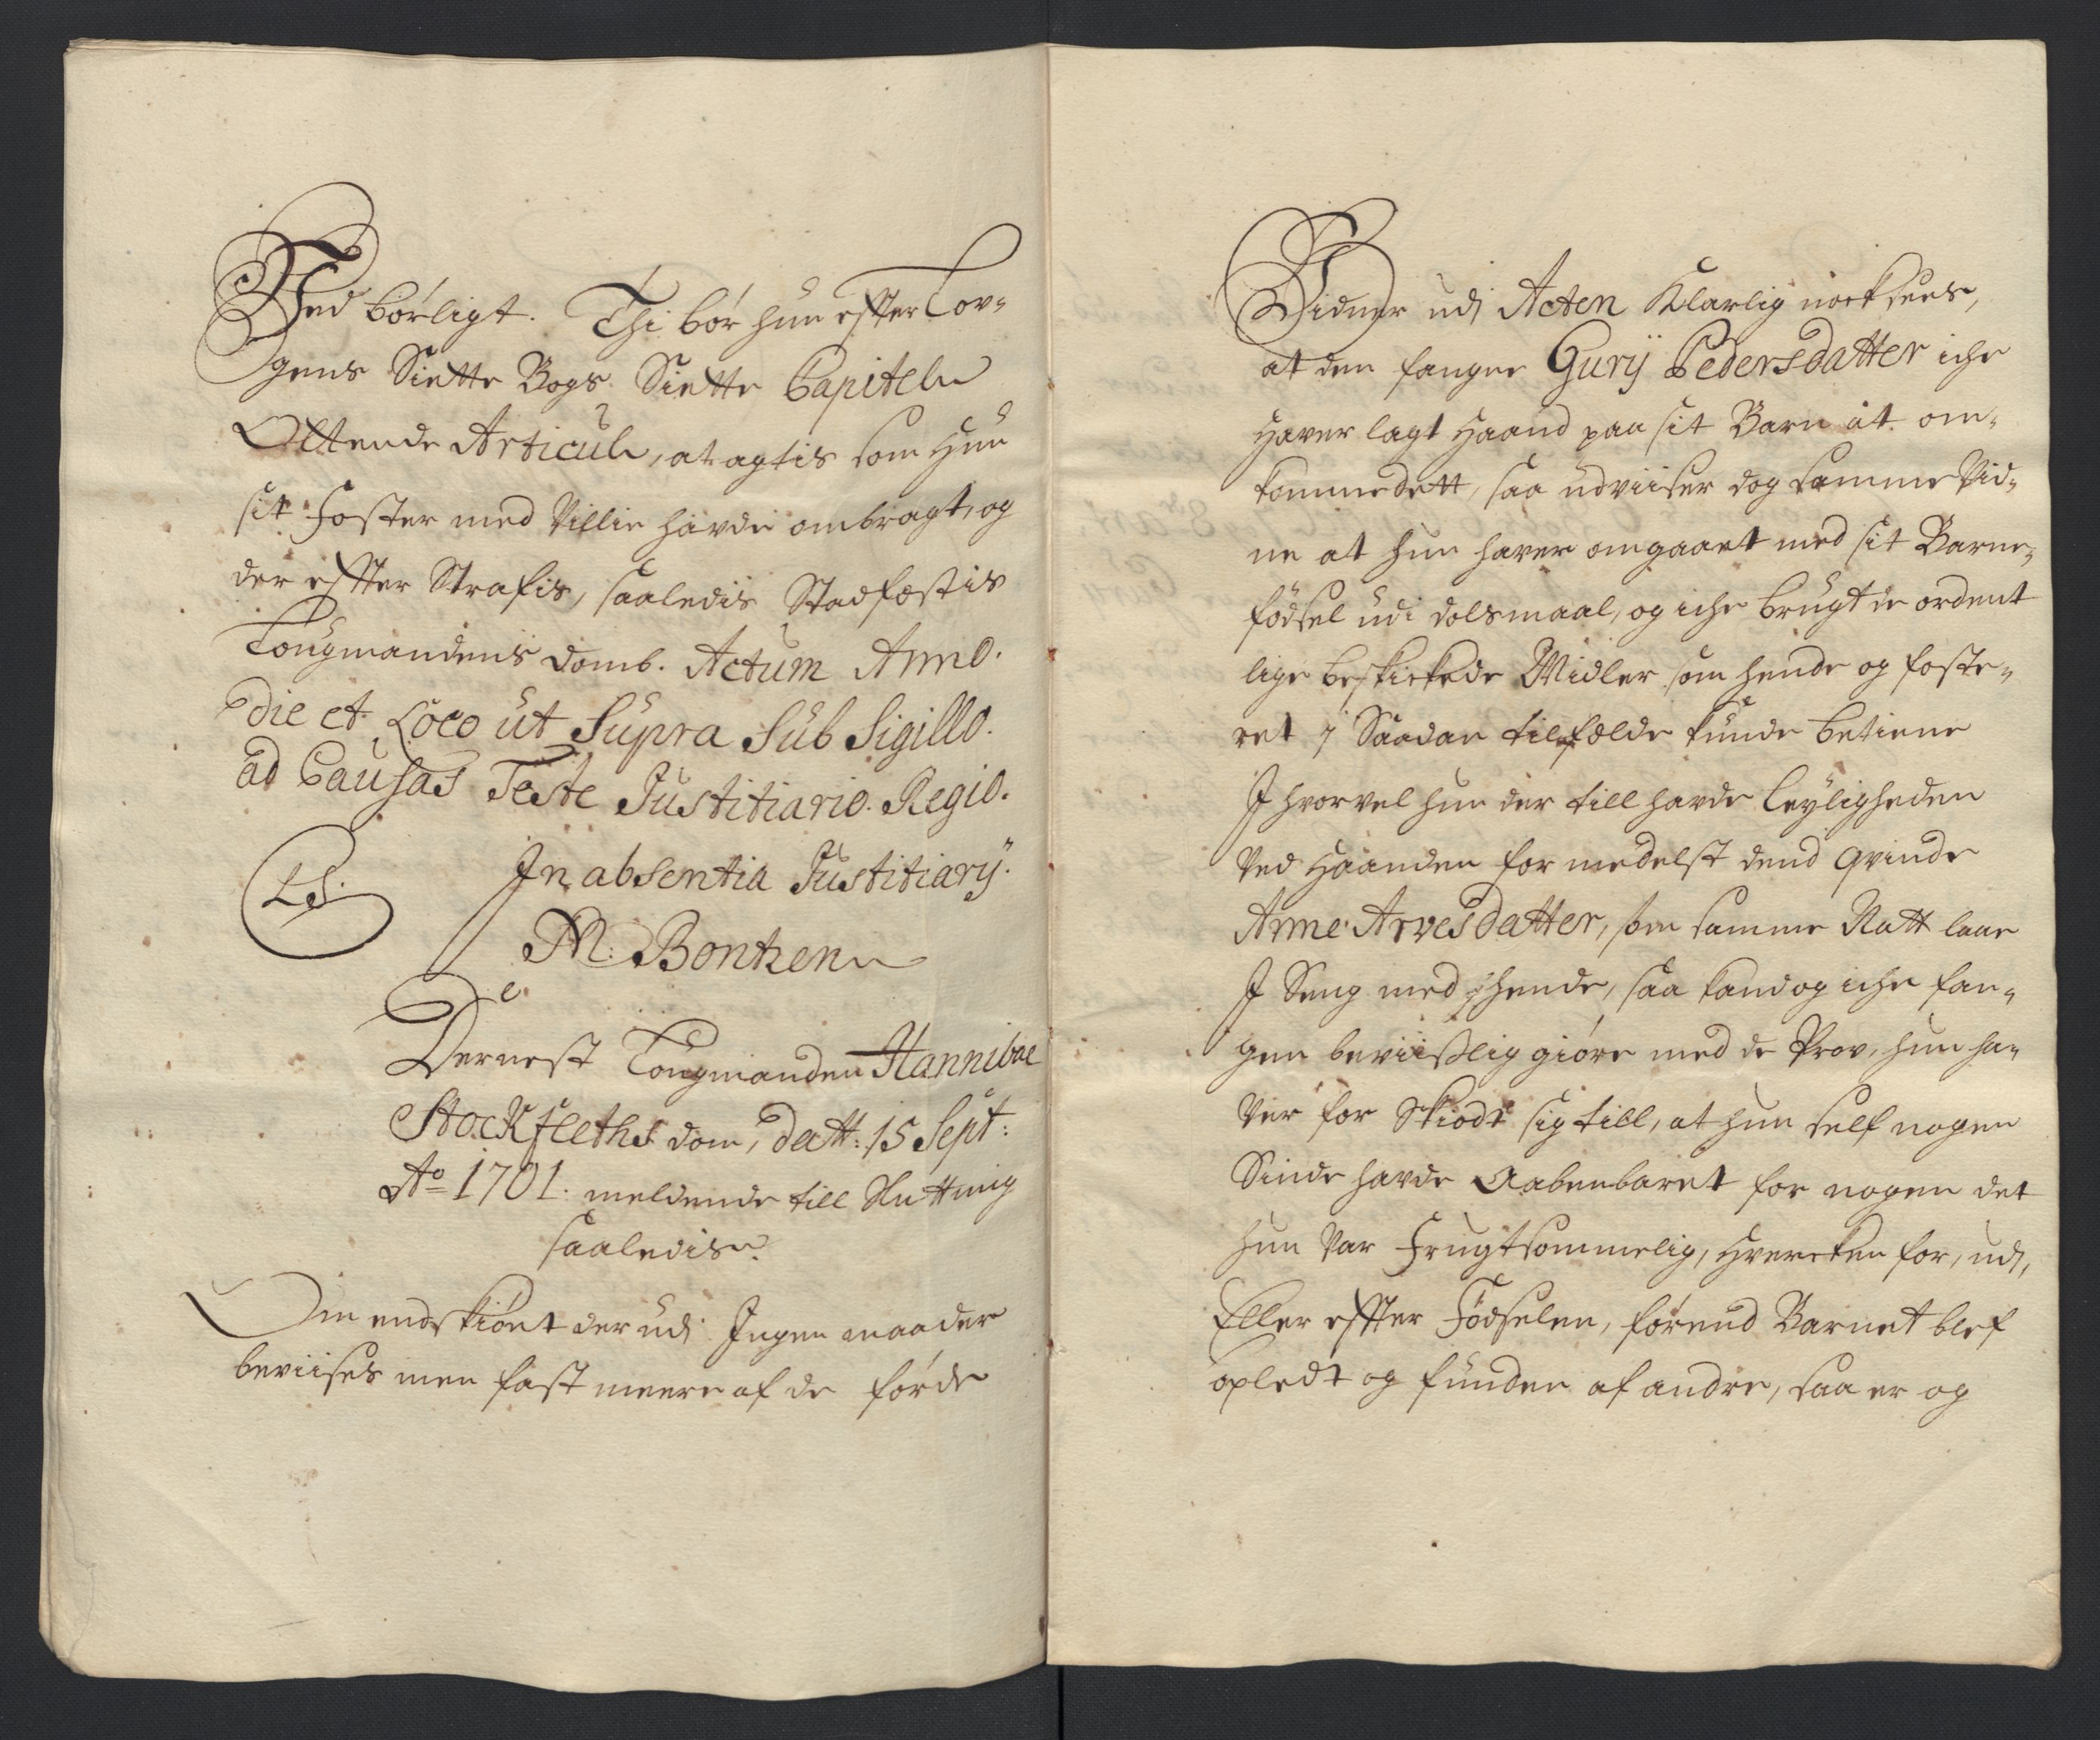 Ved børligt. Thi bør hun effter Lov-
gens Siette Bogs Siette Capitels
Ottende Articul, at agtis som Hun
sit Foster med Villie hafde ombragt, og
der effter Strafis, saaledis Stadfæstis
Laugmandens domb. Actum Anno.
die et Loco ut Supra Sub Sigillo.
ad Causas Teste Justitiario. Regio.
In absentia Justitiarij.
LS.
M: Bontzen
Dernest Laugmanden Hannibal
Stockfleths dom, datt: 15 Sept:
Ao 1701. meldende till Slutning
saaledis.
Om endskiønt der udi Ingen maader
beviises men fast meere af de førde
Vidner udi Acten Klarlig nock sees,
at den fangne Gurij Pedersdatter iche
Haver lagt Haand paa sit Barn at om-
kommedett, saa udviiser dog samme Vid-
ne at hun haver omgaaet med sit Barne-
fødsel udi dolsmaal, og iche brugt de ordent
lige beskickede Midler som hende og foste-
ret i Saadan tilfælde kunde betiene
Ihvorvel hun der till hafde leyligheden
Ved Haanden formedelst dend qvinde
Anne Arvesdatter, som samme Natt laae
I Seng med hende, saa kand og iche fan-
gen beviislig giøre med de Prov, hun ha-
ver for Skiodt sig till, at hun self nogen
Sinde hafde Aabenbaret for nogen det
hun var Frugtsommelig, Hvercken for, udi,
Eller effter Fødselen, førend Barnet blef
opledt og funden af andre, saa er og